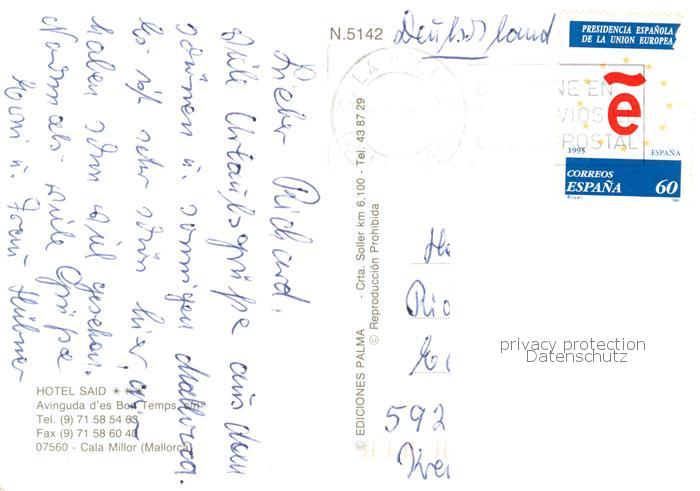 N.5142
Deutschland
PRESIDENCIA ESPAÑOLA
DE LA UNION EUROPEA
ẽ
1995
ESPAÑA
CORREOS
ESPAÑA 60
Lieber Richard,
Viele Urlaubsgrüße aus dem
schönen u. sonnigen Mallorca.
Es ist sehr schön hier, wir
haben schon viel gesehen.
Nochmals viele Grüße
Horst u. Frau Hübner
HOTEL SAID ★★★
Avinguda d'es Bon Temps, s/n
Tel. (9) 71 58 54 63
Fax (9) 71 58 60 40
07560 - Cala Millor (Mallorca)
© EDICIONES PALMA - Crta. Soller km 6,100 - Tel. 43 87 29
© Reproducción Prohibida
He
Ric
592
privacy protection
Datenschutz